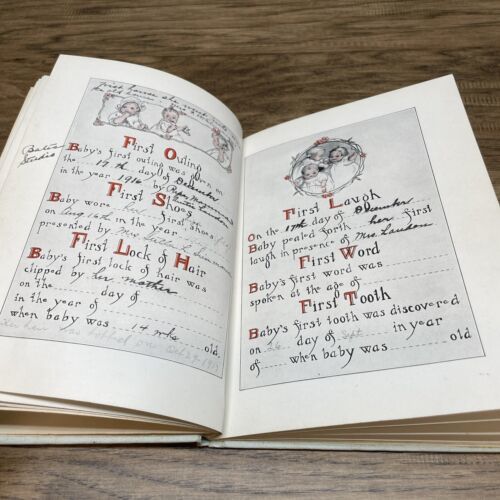 First
the old home
Baker
Studio
First Outing
Baby's first outing was given on
the 19th day of December
in the year 1916 by
First Shoes
Baby wore first shoes
on Aug 16th in the year
presented by
First Lock of Hair
Baby's first lock of hair was
clipped by her mother
on the day of
in the year of
when baby was 14 mhs old.
First Laugh
On the 17th day of December
Baby pealed forth her first
laugh in presence of Mrs.
First Word
Baby's first word was
spoken at the age of
First Tooth
Baby's first tooth was discovered
on 26 day of Sept in year
of when baby was old.